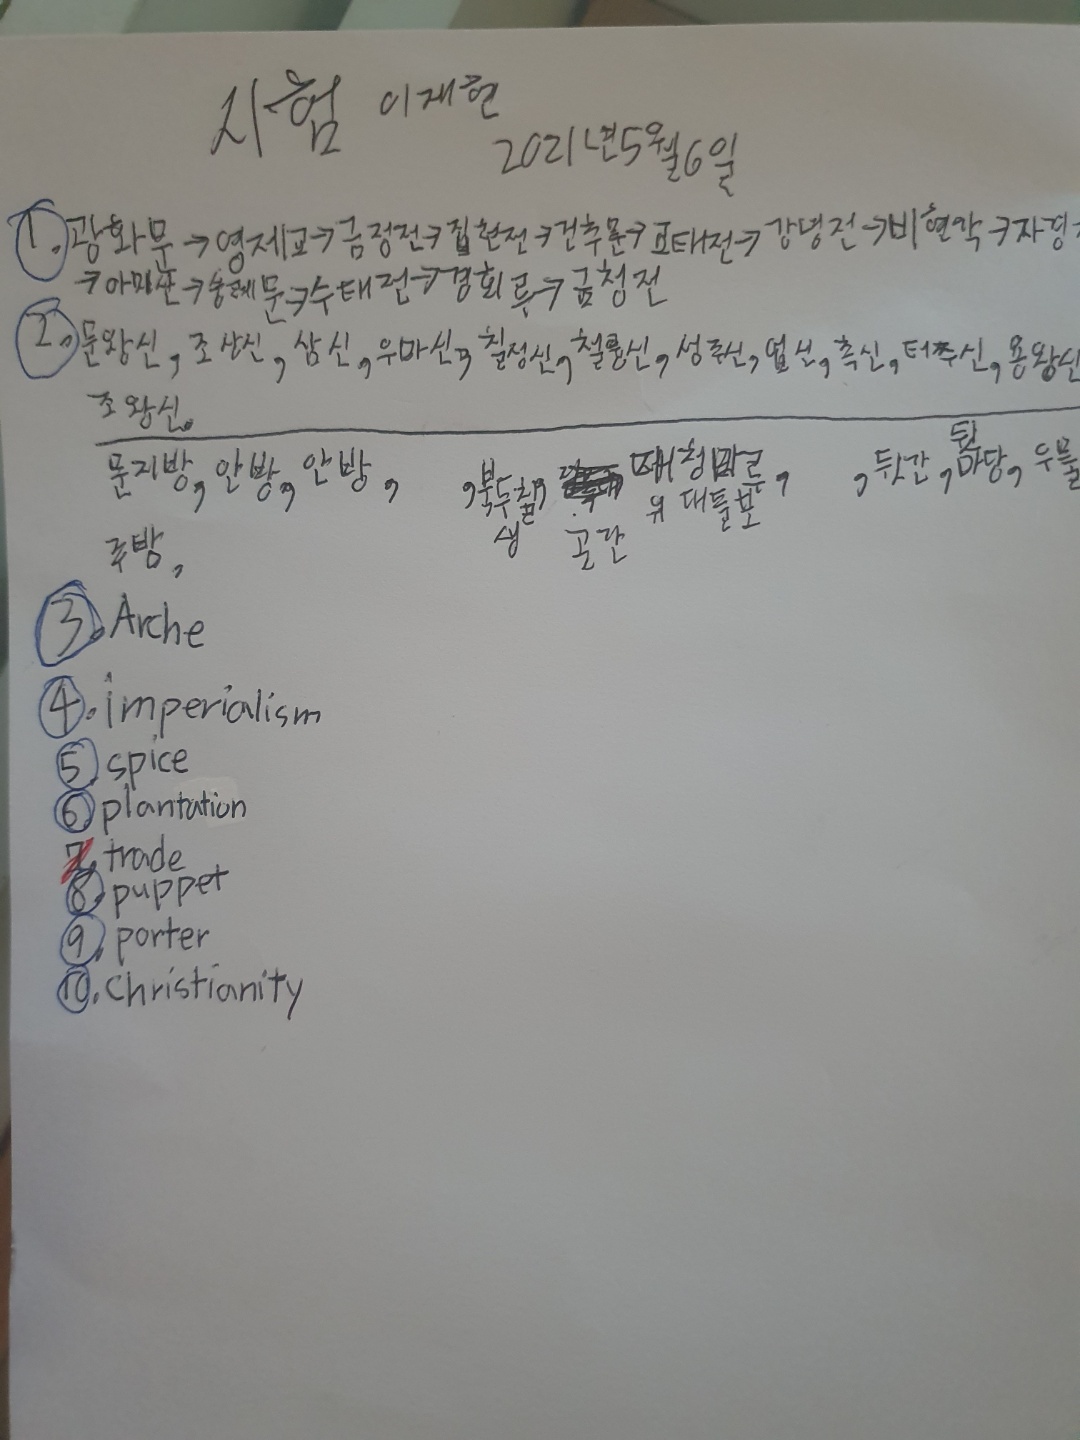 시험 이재현
2021년5월6일
1. 광화문→영제교→금정전→집현전→건추문→교태전→강녕전→비현각→자경
→아미산→숭례문→수태전→경회루→금청전
2. 문왕신, 조상신, 삼신, 우마신, 칠정신, 철륭신, 성주신, 업신, 측신, 터주신, 용왕신
조왕신.
문지방, 안방, 안방, , 북두칠생, 곳간 대청마루위 대들보, , 뒷간, 뒷마당, 우물
주방,
3. Arche
4. imperialism
5. spice
6. plantation
7. trade
8. puppet
9. porter
10. christianity